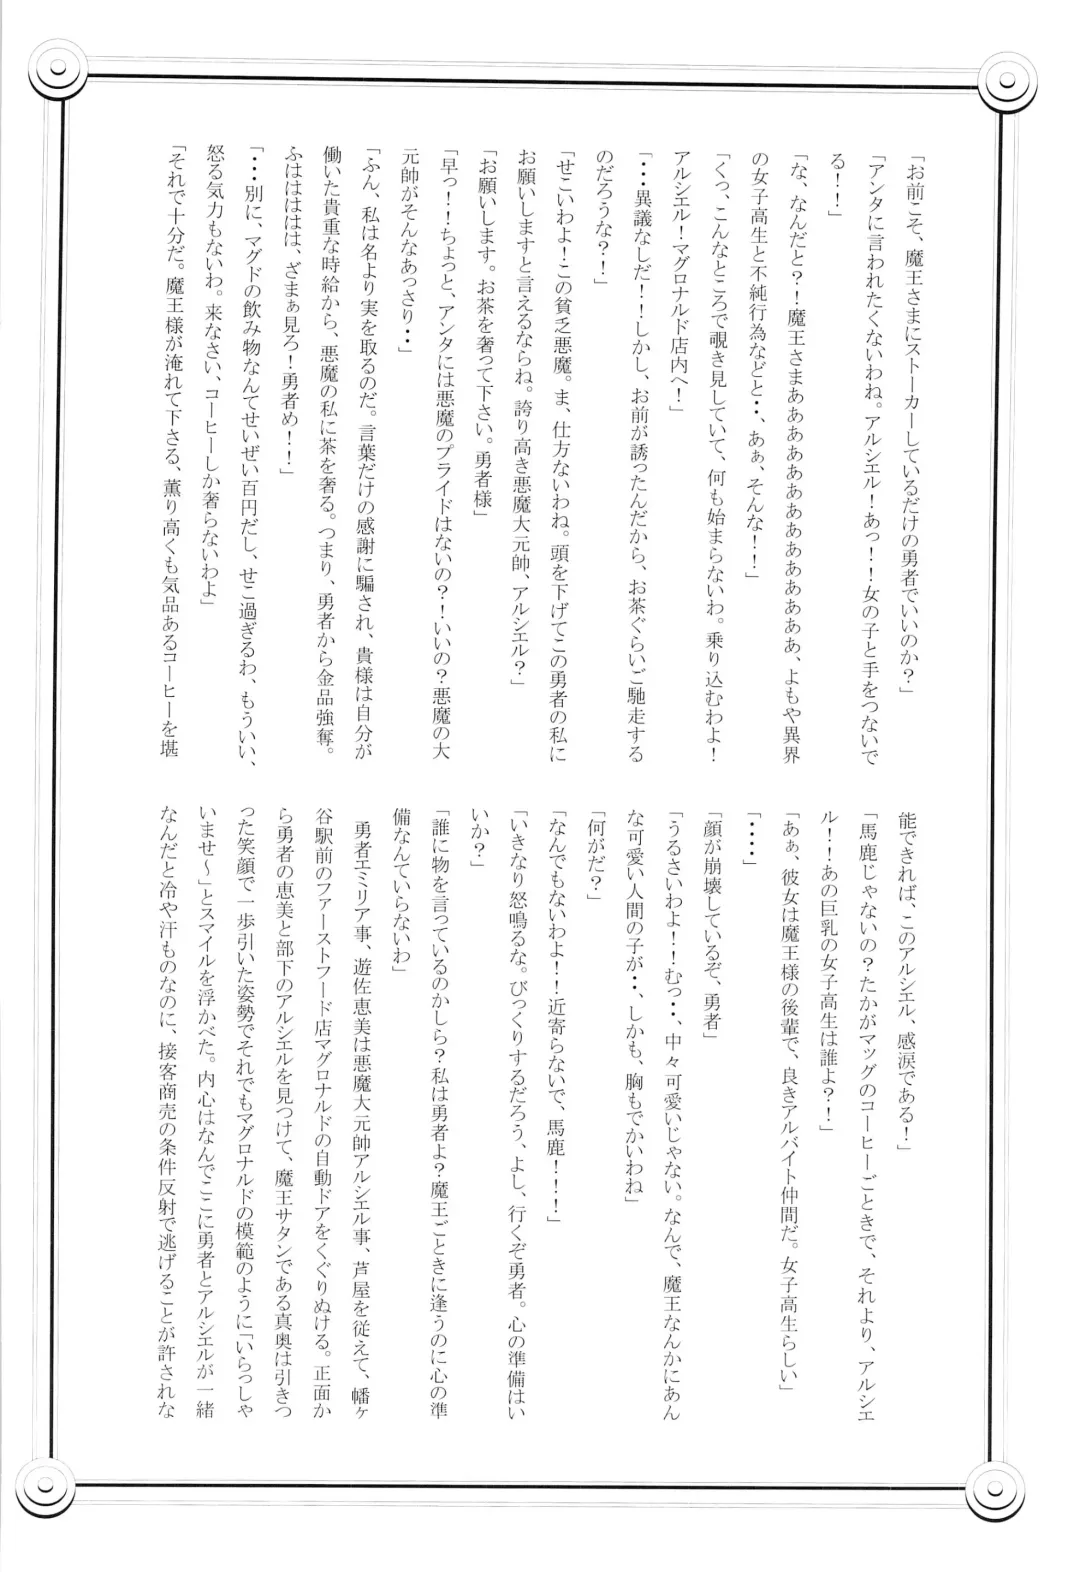 「お前こそ、魔王さまにストーカーしているだけの勇者でいいのか？」
「アンタに言われたくないわね。アルシエル！あっ！！女の子と手をつないで
る！！」
「な、なんだと？！魔王さまあああああああああああああああ、よもや異界
の女子高生と不純行為などと・・、あぁ、そんな！！」
「くっ、こんなところで覗き見していて、何も始まらないわ。乗り込むわよ！
アルシエル！マグロナルド店内へ！」
「・・・異議なしだ！！しかし、お前が誘ったんだから、お茶ぐらいご馳走する
のだろうな？！」
「せこいわよ！この貧乏悪魔。ま、仕方ないわね。頭を下げてこの勇者の私に
お願いしますと言えるならね。誇り高き悪魔大元帥、アルシエル？」
「お願いします。お茶を奢って下さい。勇者様」
「早っ！！ちょっと、アンタには悪魔のプライドはないの？！いいの？悪魔の大
元帥がそんなあっさり・・」
「ふん、私は名より実を取るのだ。言葉だけの感謝に騙され、貴様は自分が
働いた貴重な時給から、悪魔の私に茶を奢る。つまり、勇者から金品強奪。
ふはははははは、ざまぁ見ろ！勇者め！！」
「・・・別に、マグドの飲み物なんてせいぜい百円だし、せこ過ぎるわ、もういい、
怒る気力もないわ。来なさい、コーヒーしか奢らないわよ」
「それで十分だ。魔王様が淹れて下さる、薫り高くも気品あるコーヒーを堪
能できれば、このアルシエル、感涙である！」
「馬鹿じゃないの？たかがマッグのコーヒーごときで、それより、アルシエ
ル！！あの巨乳の女子高生は誰よ？！」
「あぁ、彼女は魔王様の後輩で、良きアルバイト仲間だ。女子高生らしい」
「・・・・」
「顔が崩壊しているぞ、勇者」
「うるさいわよ！！むっ・・、中々可愛いじゃない。なんで、魔王なんかにあん
な可愛い人間の子が・・、しかも、胸もでかいわね」
「何がだ？」
「なんでもないわよ！！近寄らないで、馬鹿！！！」
「いきなり怒鳴るな。びっくりするだろう、よし、行くぞ勇者。心の準備はい
いか？」
「誰に物を言っているのかしら？私は勇者よ？魔王ごときに逢うのに心の準
備なんていらないわ」
　勇者エミリア事、遊佐恵美は悪魔大元帥アルシエル事、芦屋を従えて、幡ヶ
谷駅前のファーストフード店マグロナルドの自動ドアをくぐりぬける。正面か
ら勇者の恵美と部下のアルシエルを見つけて、魔王サタンである真奥は引きつ
った笑顔で一歩引いた姿勢でそれでもマグロナルドの模範のように「いらっしゃ
いませ～」とスマイルを浮かべた。内心はなんでここに勇者とアルシエルが一緒
なんだと冷や汗ものなのに、接客商売の条件反射で逃げることが許されな